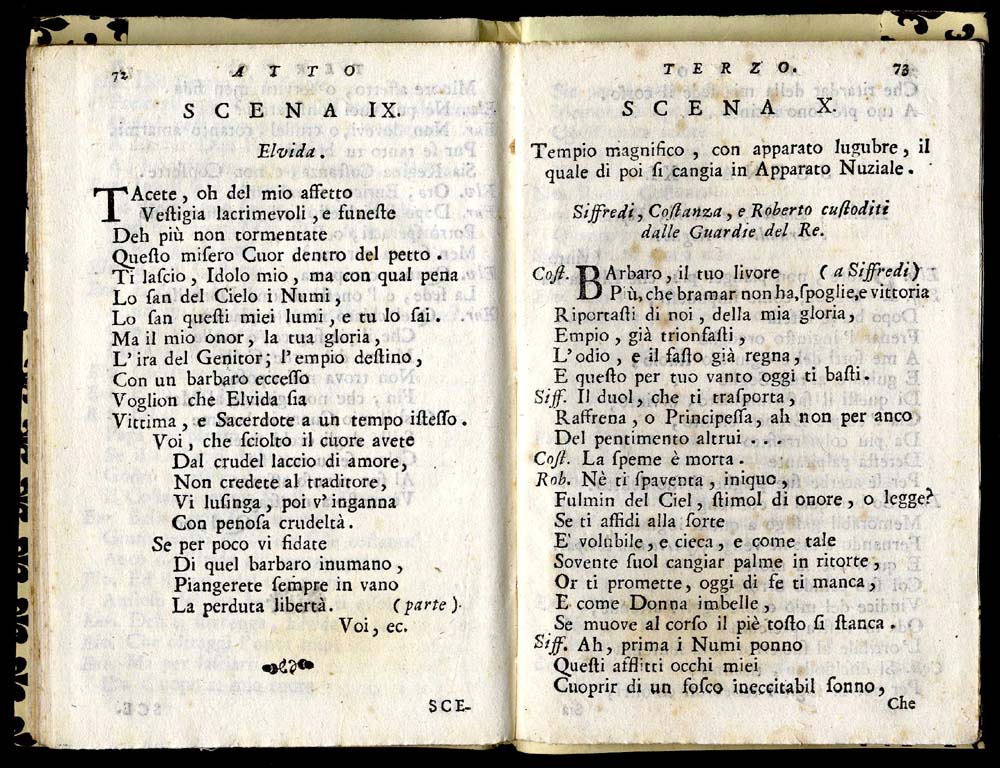 72 ATTO
SCENA IX.
Elvida.
TAcete, oh del mio affetto
Veſtigia lacrimevoli, e funeſte
Deh più non tormentate
Queſto miſero Cuor dentro del petto.
Ti laſcio, Idolo mio, ma con qual pena
Lo ſan del Cielo i Numi,
Lo ſan queſti miei lumi, e tu lo ſai.
Ma il mio onor, la tua gloria,
L'ira del Genitor; l'empio deſtino,
Con un barbaro ecceſſo
Voglion che Elvida ſia
Vittima, e Sacerdote a un tempo iſteſſo.
Voi, che ſciolto il cuore avete
Dal crudel laccio di amore,
Non credete al traditore,
Vi luſinga, poi v'inganna
Con penoſa crudeltà.
Se per poco vi fidate
Di quel barbaro inumano,
Piangerete ſempre in vano
La perduta libertà. (parte).
Voi, ec.
SCE-
TERZO. 73
SCENA X.
Tempio magnifico, con apparato lugubre, il
quale di poi ſi cangia in Apparato Nuziale.
Siffredi, Coſtanza, e Roberto cuſtoditi
dalle Guardie del Re.
Coſt. BArbaro, il tuo livore (a Siffredi)
Più, che bramar non ha, ſpoglie, e vittoria
Riportaſti di noi, della mia gloria,
Empio, già trionfaſti,
L'odio, e il faſto già regna,
E queſto per tuo vanto oggi ti baſti.
Siff. Il duol, che ti traſporta,
Raffrena, o Principeſſa, ah non per anco
Del pentimento altrui...
Coſt. La ſpeme è morta.
Rob. Nè ti ſpaventa, iniquo,
Fulmin del Ciel, ſtimol di onore, o legge?
Se ti affidi alla ſorte
E' volubile, e cieca, e come tale
Sovente ſuol cangiar palme in ritorte,
Or ti promette, oggi di fe ti manca,
E come Donna imbelle,
Se muove al corſo il piè toſto ſi ſtanca.
Siff. Ah, prima i Numi ponno
Queſti afflitti occhi miei
Cuoprir di un foſco ineccitabil ſonno,
Che